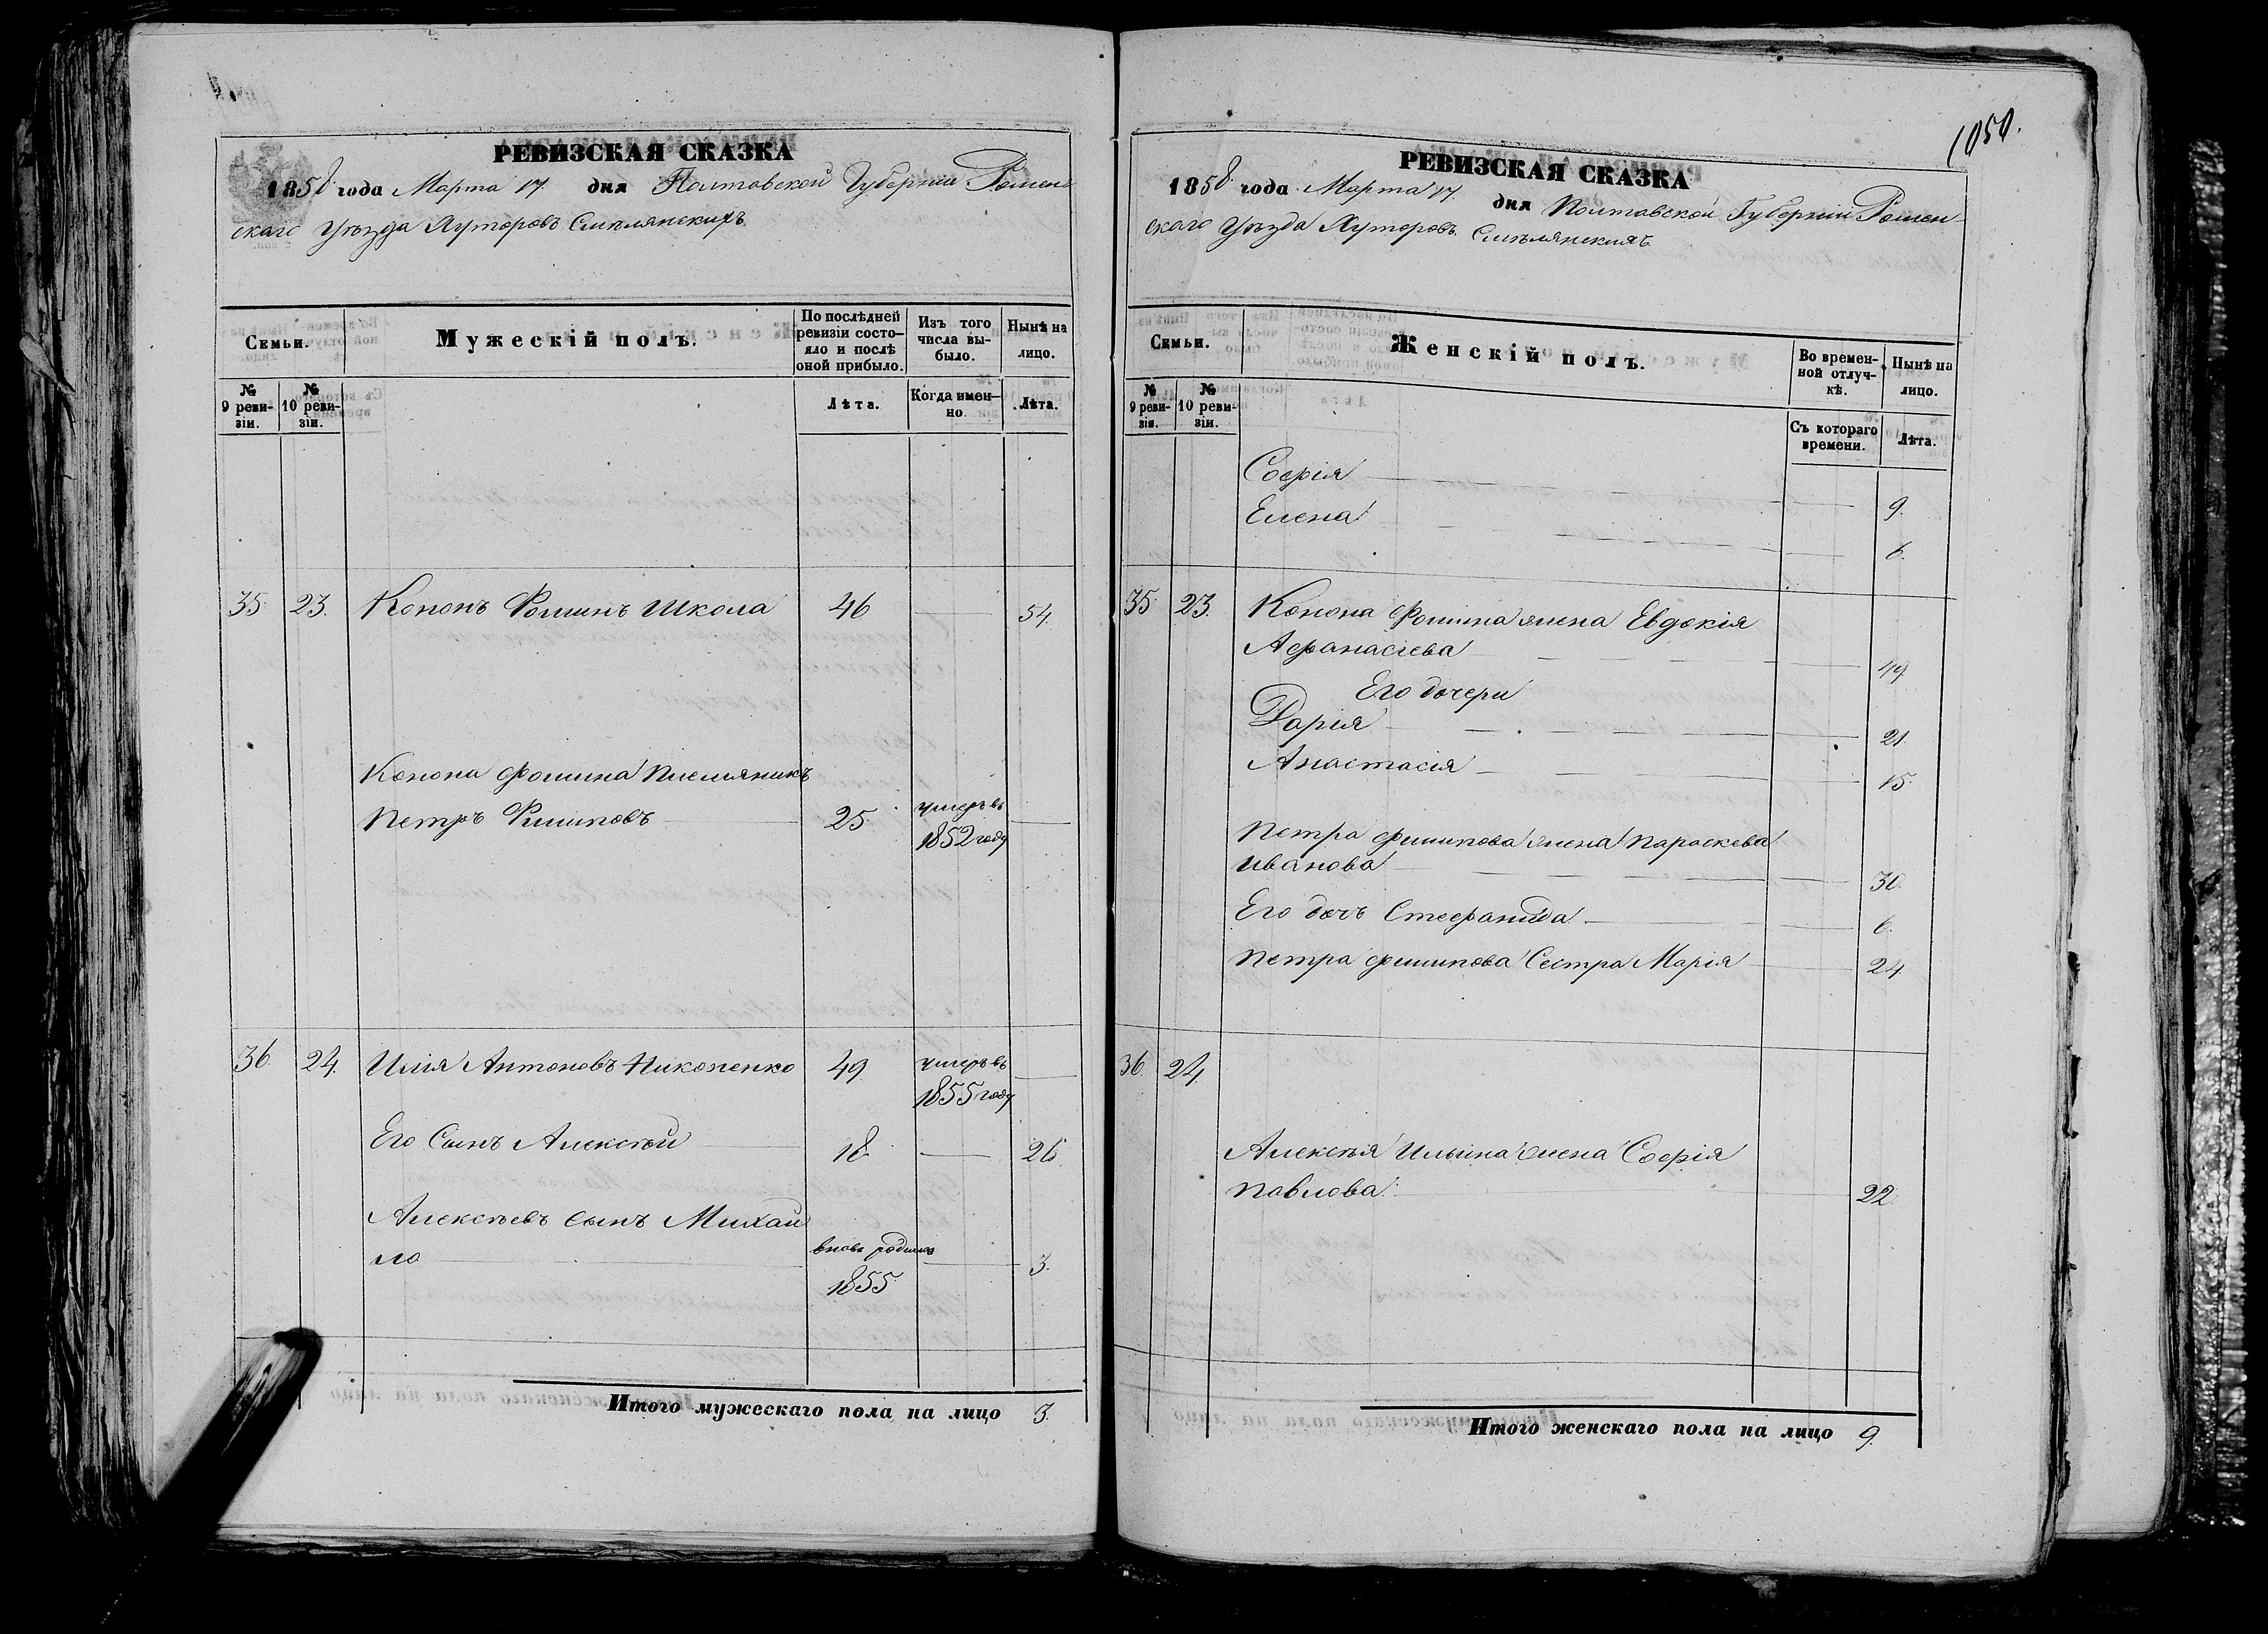 РЕВИЗСКАЯ СКАЗКА
1858 года Марта 17. дня Полтавской Губерніи Ромен
скаго Уѣзда Хуторовъ Смѣлянскихъ
Семьи.
Мужескій полъ.
По послѣдней ревизіи состо-
яло и послѣ оной прибыло.
Изъ того числа вы-
было.
Нынѣ на лицо.
№ 9 реви-
зіи.
№ 10 реви-
зіи.
Лѣта.
Когда имен-
но.
Лѣта.
35. 23. Кононъ Фоминъ Школа 46 54.
Конона Фомина племяникъ
Петръ Филиповъ 25. умеръ въ
1852 году
36. 24. Илія Антоновъ 49. умеръ въ
1855 году
Его Сынъ Алексѣй 18. 26
Алексѣевъ сынъ Михай
ло вновь родился 3.
1855
Итого мужескаго пола на лицо 3.
1050.
РЕВИЗСКАЯ СКАЗКА
1858 года Марта 17. дня Полтавской Губерніи Ромен
скаго Уѣзда Хуторовъ Смѣлянскихъ
Семьи.
Женскій полъ.
Во времен-
ной отлуч-
кѣ.
Нынѣ на лицо.
№ 9 реви-
зіи.
№ 10 реви-
зіи.
Съ котораго времени.
Лѣта.
Софія 9.
Елена 6.
35 23. Конона Фомина жена Евдокія
Афанасіева 49
Его дочери
Дарія 21.
Анастасія 15.
Петра Филипова жена Параскева
Иванова 30.
Его дочь Стефанида 6.
Петра Филипова Сестра Марія 24
36. 24
Алексѣя Ильина жена Софія
Павлова 22.
Итого женскаго пола на лицо 9.